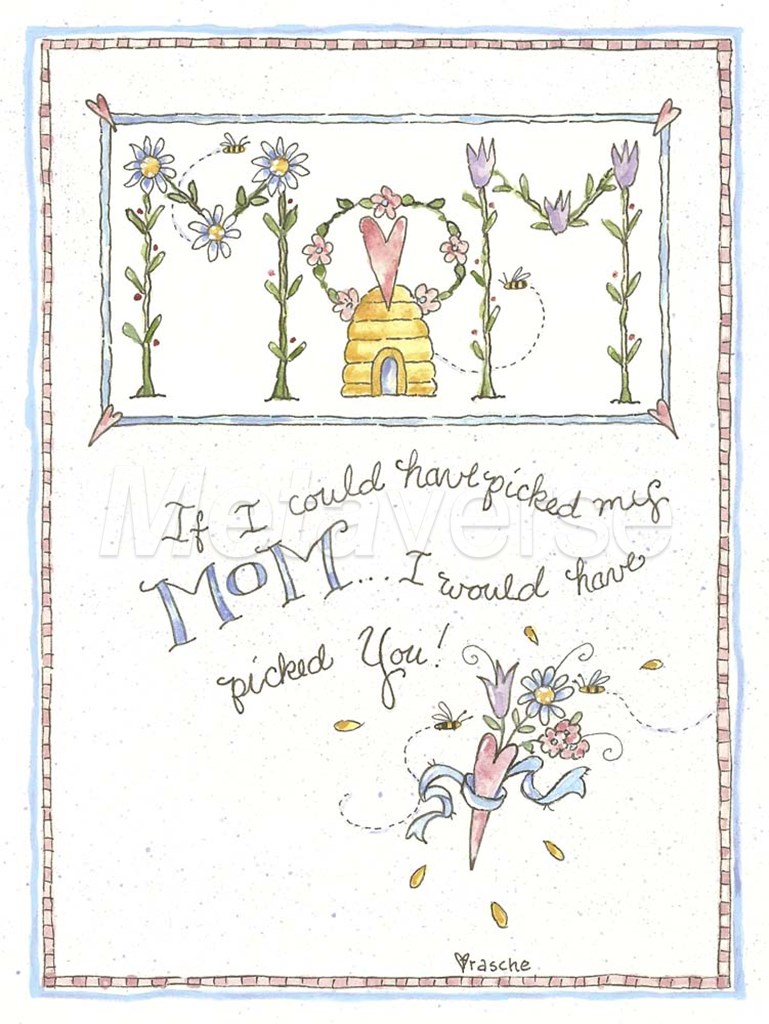 MOM
If I could have picked my
MOM... I would have
picked You!
Metaverse
rasche